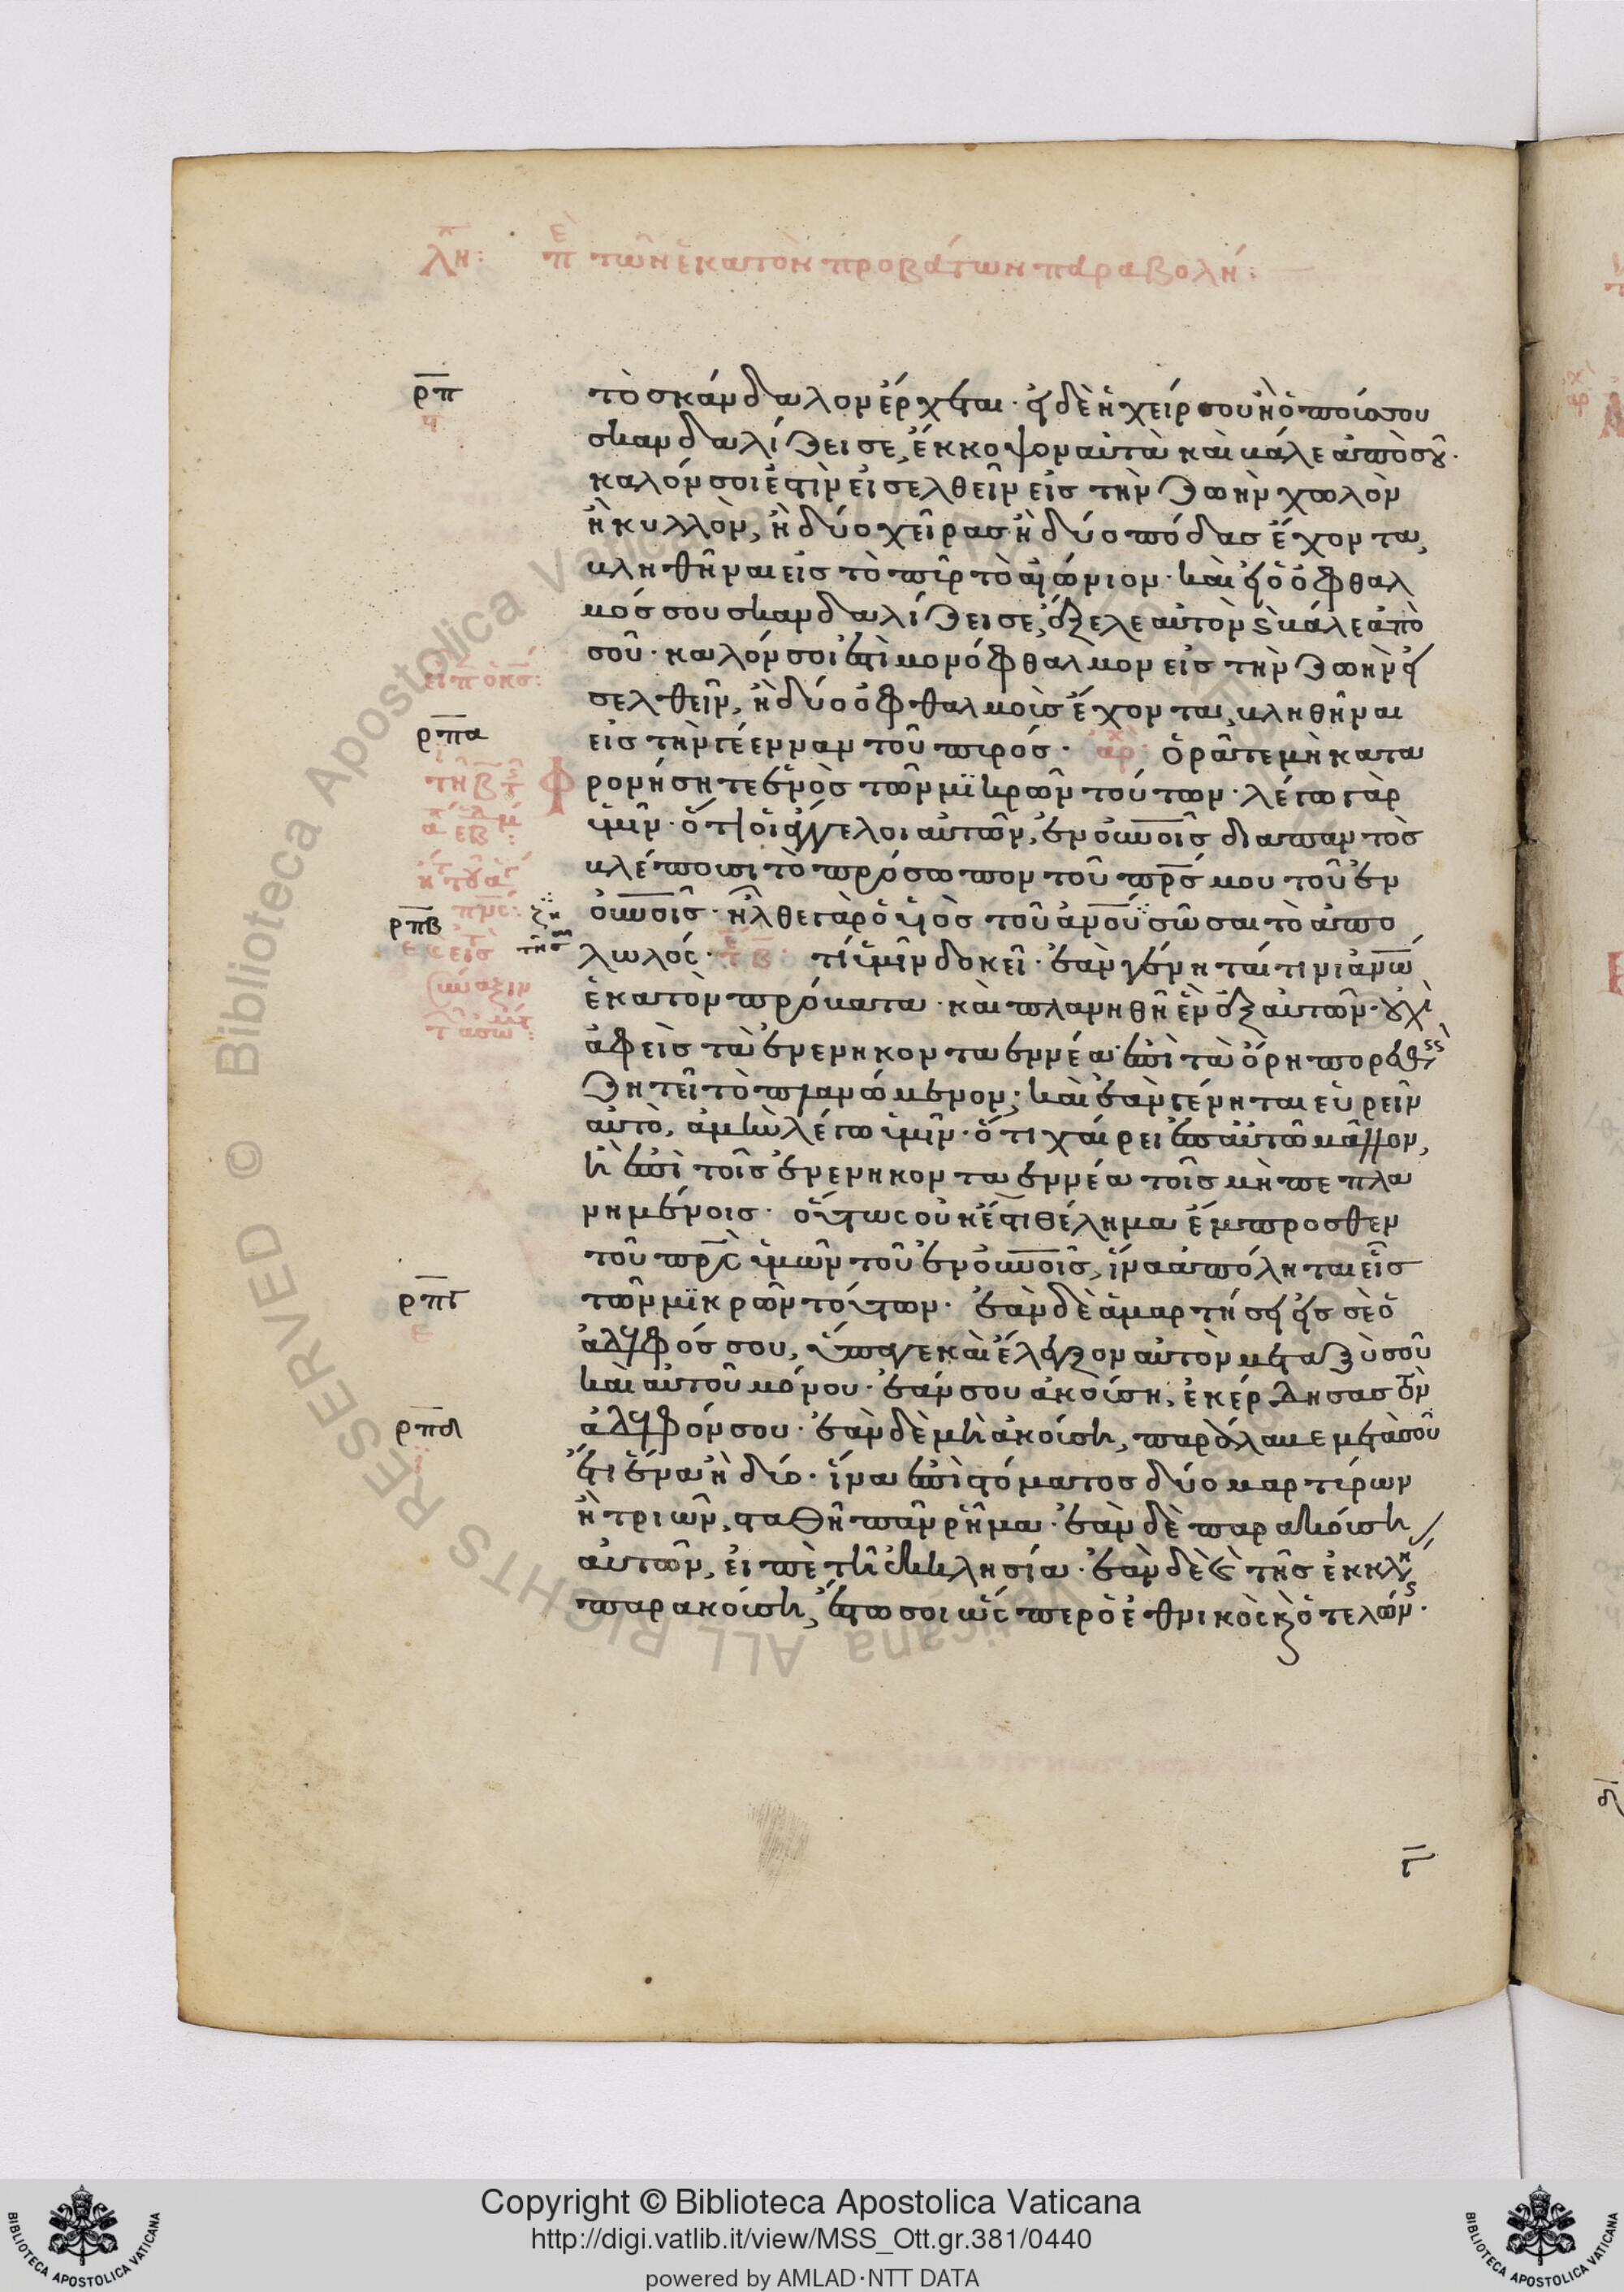 λη: πε τῶν ἑκατὸν προβάτων παραβολή:
ρπ
τὸ σκάνδαλον ἔρχεται· εἰ δὲ ἡ χείρ σου ἢ ὁ ποῦσ σου
σκανδαλίζει σε, ἔκκοψον αὐτὰ καὶ βάλε ἀπὸ σοῦ·
καλόν σοι ἐστὶν εἰσελθεῖν εἰς τὴν ζωὴν χωλὸν
ἢ κυλλὸν, ἢ δύο χεῖρασ ἢ δύο πόδασ ἔχοντα,
βληθῆναι εἰσ τὸ πῦρ τὸ αἰώνιον· καὶ εἰ ὁ ὀφθαλ
μόσ σου σκανδαλίζει σε, ἔξελε αὐτὸν ϛ βάλε ἀπὸ
σοῦ· καλόν σοι ἐστὶ μονόφθαλμον εἰσ τὴν ζωὴν εἰ
σελθεῖν, ἢ δύο ὀφθαλμοὺσ ἔχοντα, βληθῆναι
ρπα
εἰσ τὴν γέενναν τοῦ πυρόσ· ἀρχ: ὁρᾶτε μὴ κατα
φρονήσητε ἑνὸσ τῶν μϊκρῶν τούτων· λέγω γὰρ
ὑμῖν· ὅτι οἱ ἄγγελοι αὐτῶν, ἐν οὐνοῖσ διαπαντὸσ
βλέπουσι τὸ πρόσωπον τοῦ πρσ μου τοῦ ἐν
ρπβ
οὐνοῖσ· ἦλθε γὰρ ὁ υἱὸσ τοῦ ἀνου σῶσαι τὸ ἀπο
λωλός· τί ὑμῖν δοκεῖ· ἐὰν γένηται τινι ἀνω
ἑκατὸν πρόβατα· καὶ πλανηθῆ ἓν ἐξ αὐτῶν· οὐχὶ
ἀφεὶσ τὰ ἐνενηκονταεννέα ἐπὶ τὰ ὄρη πορευθεὶσ
ζητεῖ τὸ πλανώμενον; καὶ ἐὰν γένηται εὑρεῖν
αὐτὸ, ἀμὴν λέγω ὑμῖν· ὅτι χαίρει ἐπ αὐτῶ μᾶλλον,
ἢ ἐπὶ τοῖσ ἐνενηκονταεννέα τοῖσ μὴ πεπλα
νημένοισ· οὕτως οὐκ ἔστι θέλημα ἔμπροσθεν
τοῦ πρσ ὑμῶν τοῦ ἐν οὐνοῖσ, ἵνα ἀπόληται εἷσ
ρπγ
τῶν μϊκρῶν τούτων· ἐὰν δὲ ἁμαρτήσει εἰσ σὲ ὁ
ἀδελφόσ σου, ὕπαγε καὶ ἔλεγξον αὐτὸν μεταξὺ σοῦ
καὶ αὐτοῦ μόνου· ἐάν σου ἀκούση, ἐκέρδησασ τὸν
ρπδ
ἀδελφόν σου· ἐὰν δὲ μὴ ἀκούση, παράλαβε μετὰ σοῦ
ἔτι ἕνα ἢ δύο· ἵνα ἐπὶ στόματοσ δύο μαρτύρων
ἢ τριῶν, σταθῆ πᾶν ῥῆμα· ἐὰν δὲ παρακούση
αὐτῶν, εἰπὲ τῆ ἐκκλησία· ἐὰν δὲ ϗ τῆσ ἐκκλη
παρακούση, ἔστω σοι ὥς περ ὁ ἐθνικὸς ϗ ὁ τελώνησ·
Copyright © Biblioteca Apostolica Vaticana
http://digi.vatlib.it/view/MSS_Ott.gr.381/0440
powered by AMLAD·NTT DATA